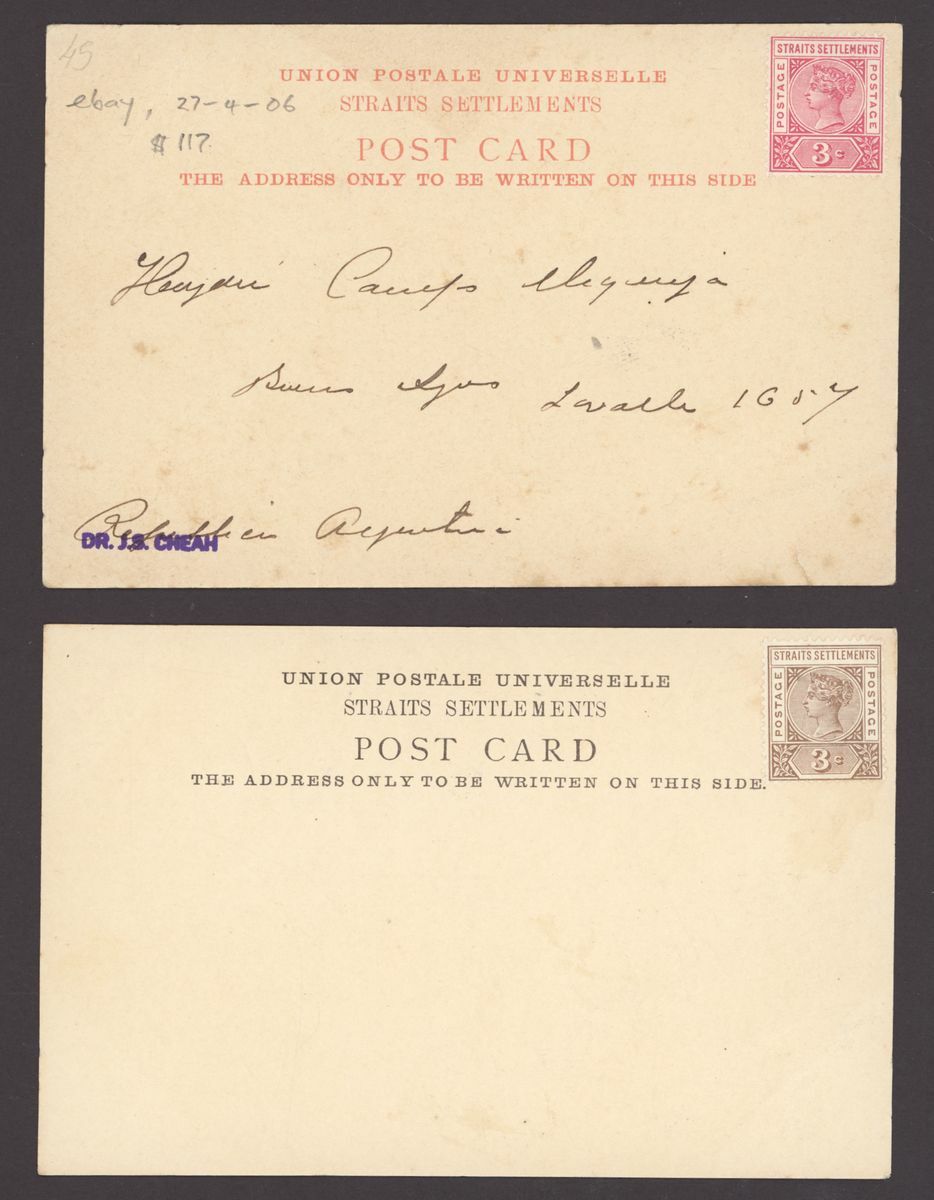 45
UNION POSTALE UNIVERSELLE
STRAITS SETTLEMENTS
ebay, 27-4-06
STRAITS SETTLEMENTS
POSTAGE
POSTAGE
3c
$117
POST CARD
THE ADDRESS ONLY TO BE WRITTEN ON THIS SIDE
Camps
Buenos Ayres
Lavalle 1657
Republica Argentina
DR. J.S. CHEAH
UNION POSTALE UNIVERSELLE
STRAITS SETTLEMENTS
STRAITS SETTLEMENTS
POSTAGE
POSTAGE
3c
POST CARD
THE ADDRESS ONLY TO BE WRITTEN ON THIS SIDE.